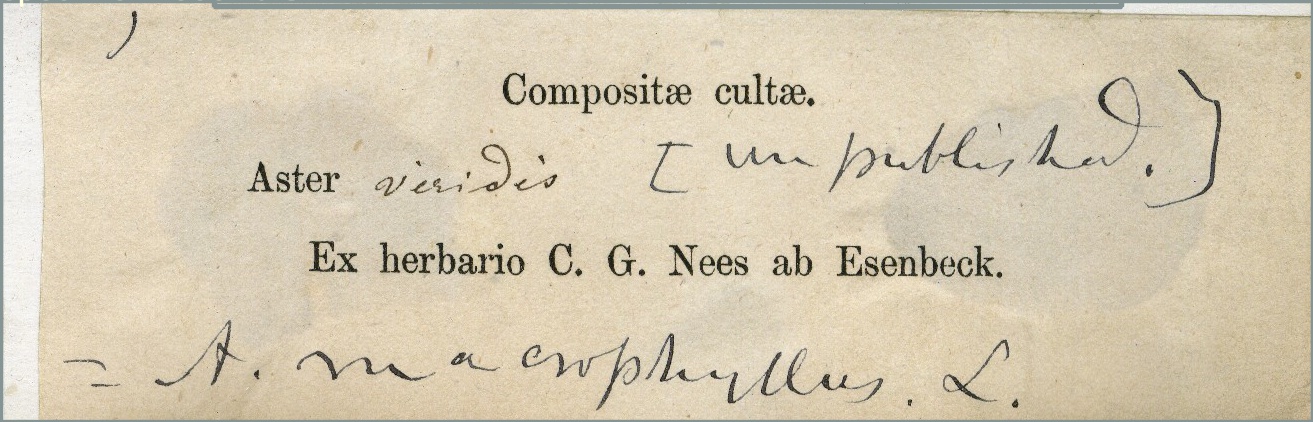 Compositæ cultæ.
Aster viridis [unpublished.]
Ex herbario C. G. Nees ab Esenbeck.
= A. macrophyllus. L.